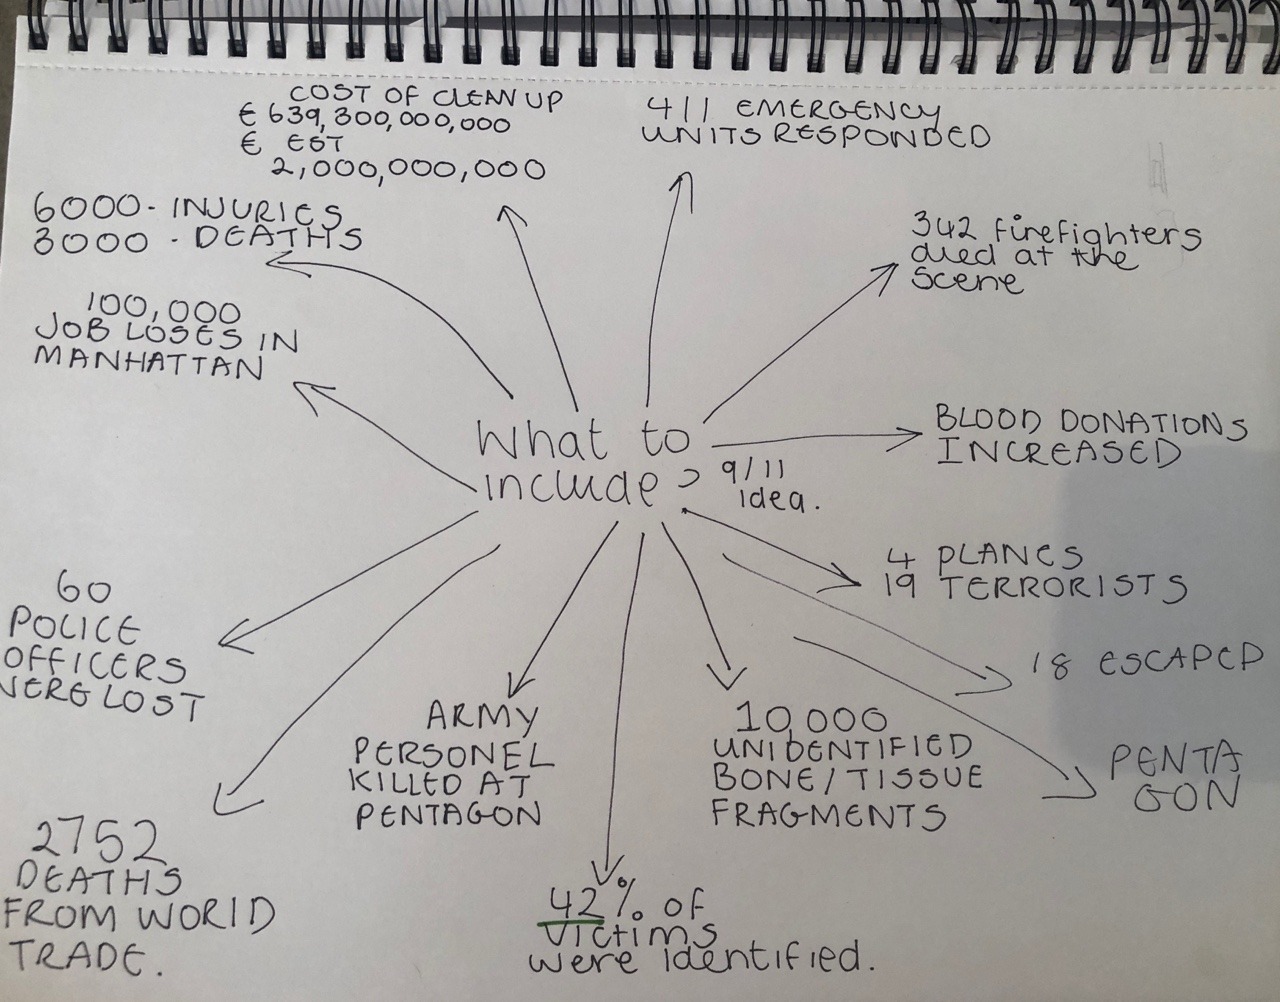 COST OF CLEAN UP
€ 639,300,000,000
€ EST
2,000,000,000
411 EMERGENCY
UNITS RESPONDED
6000- INJURIES
3000 - DEATHS
342 firefighters
died at the
scene
100,000
JOB LOSES IN
MANHATTAN
What to
include?
9/11
idea.
BLOOD DONATIONS
INCREASED
4 PLANES
19 TERRORISTS
18 ESCAPED
PENTA
GON
60
POLICE
OFFICERS
WERE LOST
ARMY
PERSONEL
KILLED AT
PENTAGON
10,000
UNIDENTIFIED
BONE/TISSUE
FRAGMENTS
2752
DEATHS
FROM WORLD
TRADE.
42% of
victims
were identified.